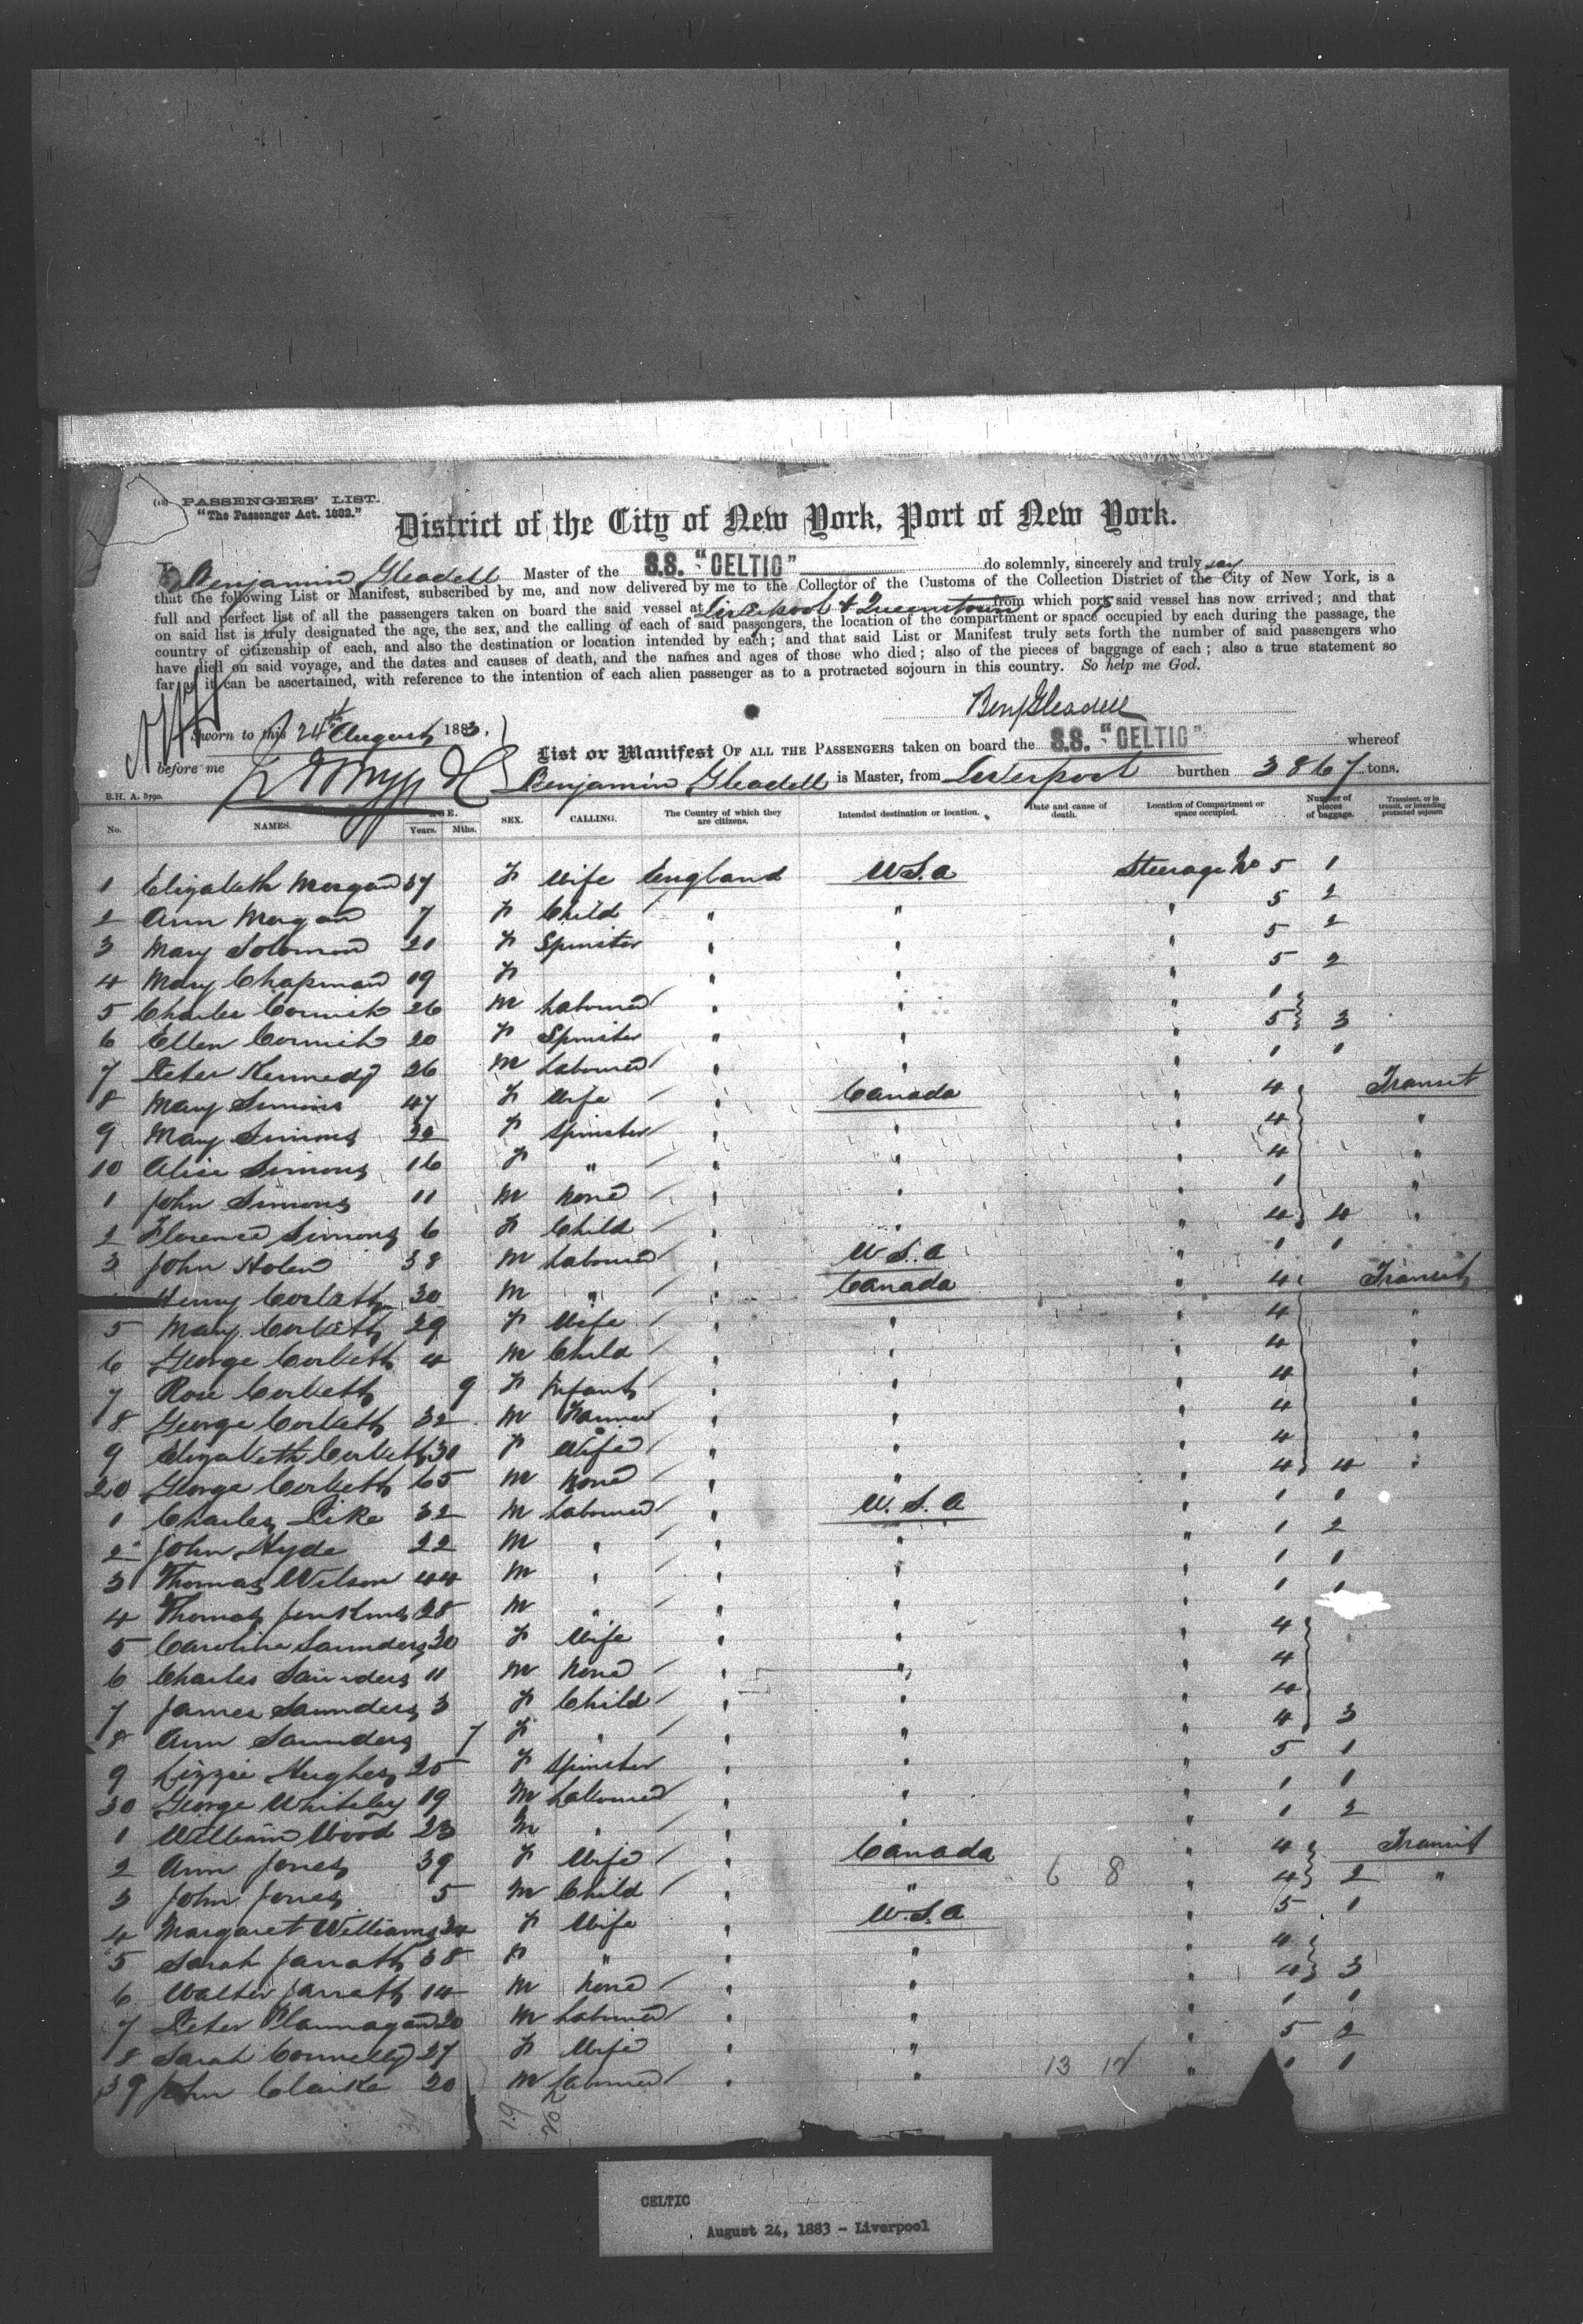 PASSENGERS' LIST.
"The Passenger Act. 1882."
District of the City of New York, Port of New York.
I, Benjamin Gleadell Master of the S.S. "CELTIC" do solemnly, sincerely and truly say
that the following List or Manifest, subscribed by me, and now delivered by me to the Collector of the Customs of the Collection District of the City of New York, is a
full and perfect list of all the passengers taken on board the said vessel at Liverpool & Queenstown from which ports said vessel has now arrived; and that
on said list is truly designated the age, the sex, and the calling of each of said passengers, the location of the compartment or space occupied by each during the passage, the
country of citizenship of each, and also the destination or location intended by each; and that said List or Manifest truly sets forth the number of said passengers who
have died on said voyage, and the dates and causes of death, and the names and ages of those who died; also of the pieces of baggage of each; also a true statement so
far as it can be ascertained, with reference to the intention of each alien passenger as to a protracted sojourn in this country. So help me God.
Benj Gleadell
Sworn to this 24th August 1883,
before me
List or Manifest OF ALL THE PASSENGERS taken on board the S.S. "CELTIC" whereof
Benjamin Gleadell is Master, from Liverpool burthen 3867 tons.
B.H. A. 5790.
No. NAMES. AGE. Years. Mths. SEX. CALLING. The Country of which they are citizens. Intended destination or location. Date and cause of death. Location of Compartment or space occupied. Number of pieces of baggage. Transient, or in transit, or intending protracted sojourn
1 Elizabeth Morgan 37 F Wife England U.S.A Steerage No 5 1
2 Ann Morgan 7 F Child " " " 5 2
3 Mary Solomon 20 F Spinster " " " 5 2
4 Mary Chapman 19 F " " " 5 2
5 Charles Cornish 26 M Labourer " " " 1
6 Ellen Cornish 20 F Spinster " " " 5 3
7 Peter Kennedy 26 M Labourer " " " 1 1
8 Mary Simons 47 F Wife " Canada " 4 Transit
9 Mary Simons 22 F Spinster " " " 4 "
10 Alice Simons 16 F " " " " 4 "
1 John Simons 11 M None " " " 1 "
2 Florence Simons 6 F Child " " " 4 4 "
3 John Holen 38 M Labourer " U.S.A " 1 1
Henry Corbett 30 M " " Canada " 4 Transit
5 Mary Corbett 29 F Wife " " " 4 "
6 George Corbett 4 M Child " " " 4 "
7 Rose Corbett 9 F Infant " " " 4 "
8 George Corbett 32 M Farmer " " " 4 "
9 Elizabeth Corbett 30 F Wife " " " 4 "
20 George Corbett 65 M None " " " 4 4 "
1 Charles Pike 32 M Labourer " U.S.A " 1 1
2 John Hyde 22 M " " " " 1 2
3 Thomas Wilson 44 M " " " " 1 1
4 Thomas Jenkins 28 M " " " " 1 1
5 Caroline Saunders 30 F Wife " " " 4
6 Charles Saunders 11 M None " " " 4
7 James Saunders 3 F Child " " " 4
8 Ann Saunders 7 F " " " " 4 3
9 Lizzie Hughes 25 F Spinster " " " 5 1
30 George Whiteley 19 M Labourer " " " 1 1
1 William Wood 23 M " " " " 1 2
2 Ann Jones 39 F Wife " Canada " 4 Transit
3 John Jones 5 M Child " " 6 8 " 4 2 "
4 Margaret Williams 24 F Wife " U.S.A " 5 1
5 Sarah Jarratt 38 F " " " " 4
6 Walter Jarratt 14 M None " " " 4 3
7 Peter Flannagan 20 M Labourer " " " 1 1
8 Sarah Connelly 27 F Wife " " " 5 2
39 John Clarke 20 M Labourer " " 13 12 " 1 1
19 20
CELTIC
August 24, 1883 - Liverpool